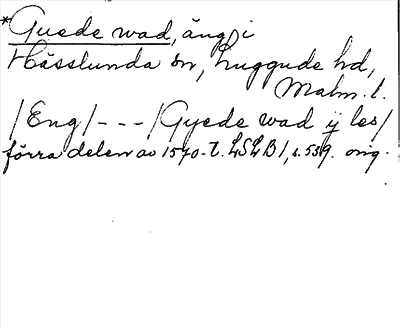 *Guede wad, äng i
Hässlunda sn, Luggude hd,
Malm. l.
/Eng/ - - - /Gyede wad ij les/
förra delen av 1570-t. LSLB I, s. 559. orig.